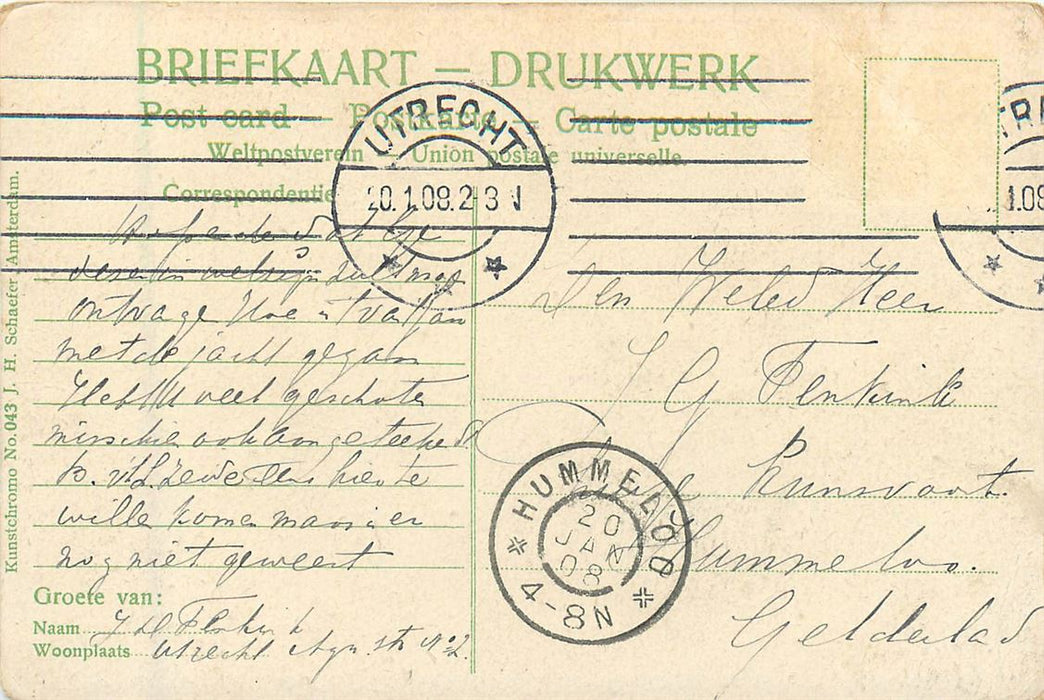 BRIEFKAART — DRUKWERK
Post card — Postkarte — Carte postale
Weltpostverein Union postale universelle
Correspondentie
UTRECHT
20.1.08.2-3 N
TRE
1.08
Kunstchromo No. 043 J. H. Schaefer, Amsterdam.
deze in welzijn zult mog
ontvagen Hoe is t van
met de jacht gegaan
Hebt U veel geschoten
misschien ook aangeteekend
B. v/d L zeide eens hier te
wille komen maar is er
nog niet geweest
Groete van:
Naam Flenkink
Woonplaats Utrecht
Den Weled Heer
J G Flenkink
de Kunsvoort
Hummeloo.
Gelderland
HUMMELOO
20
JAN
08
4-8N